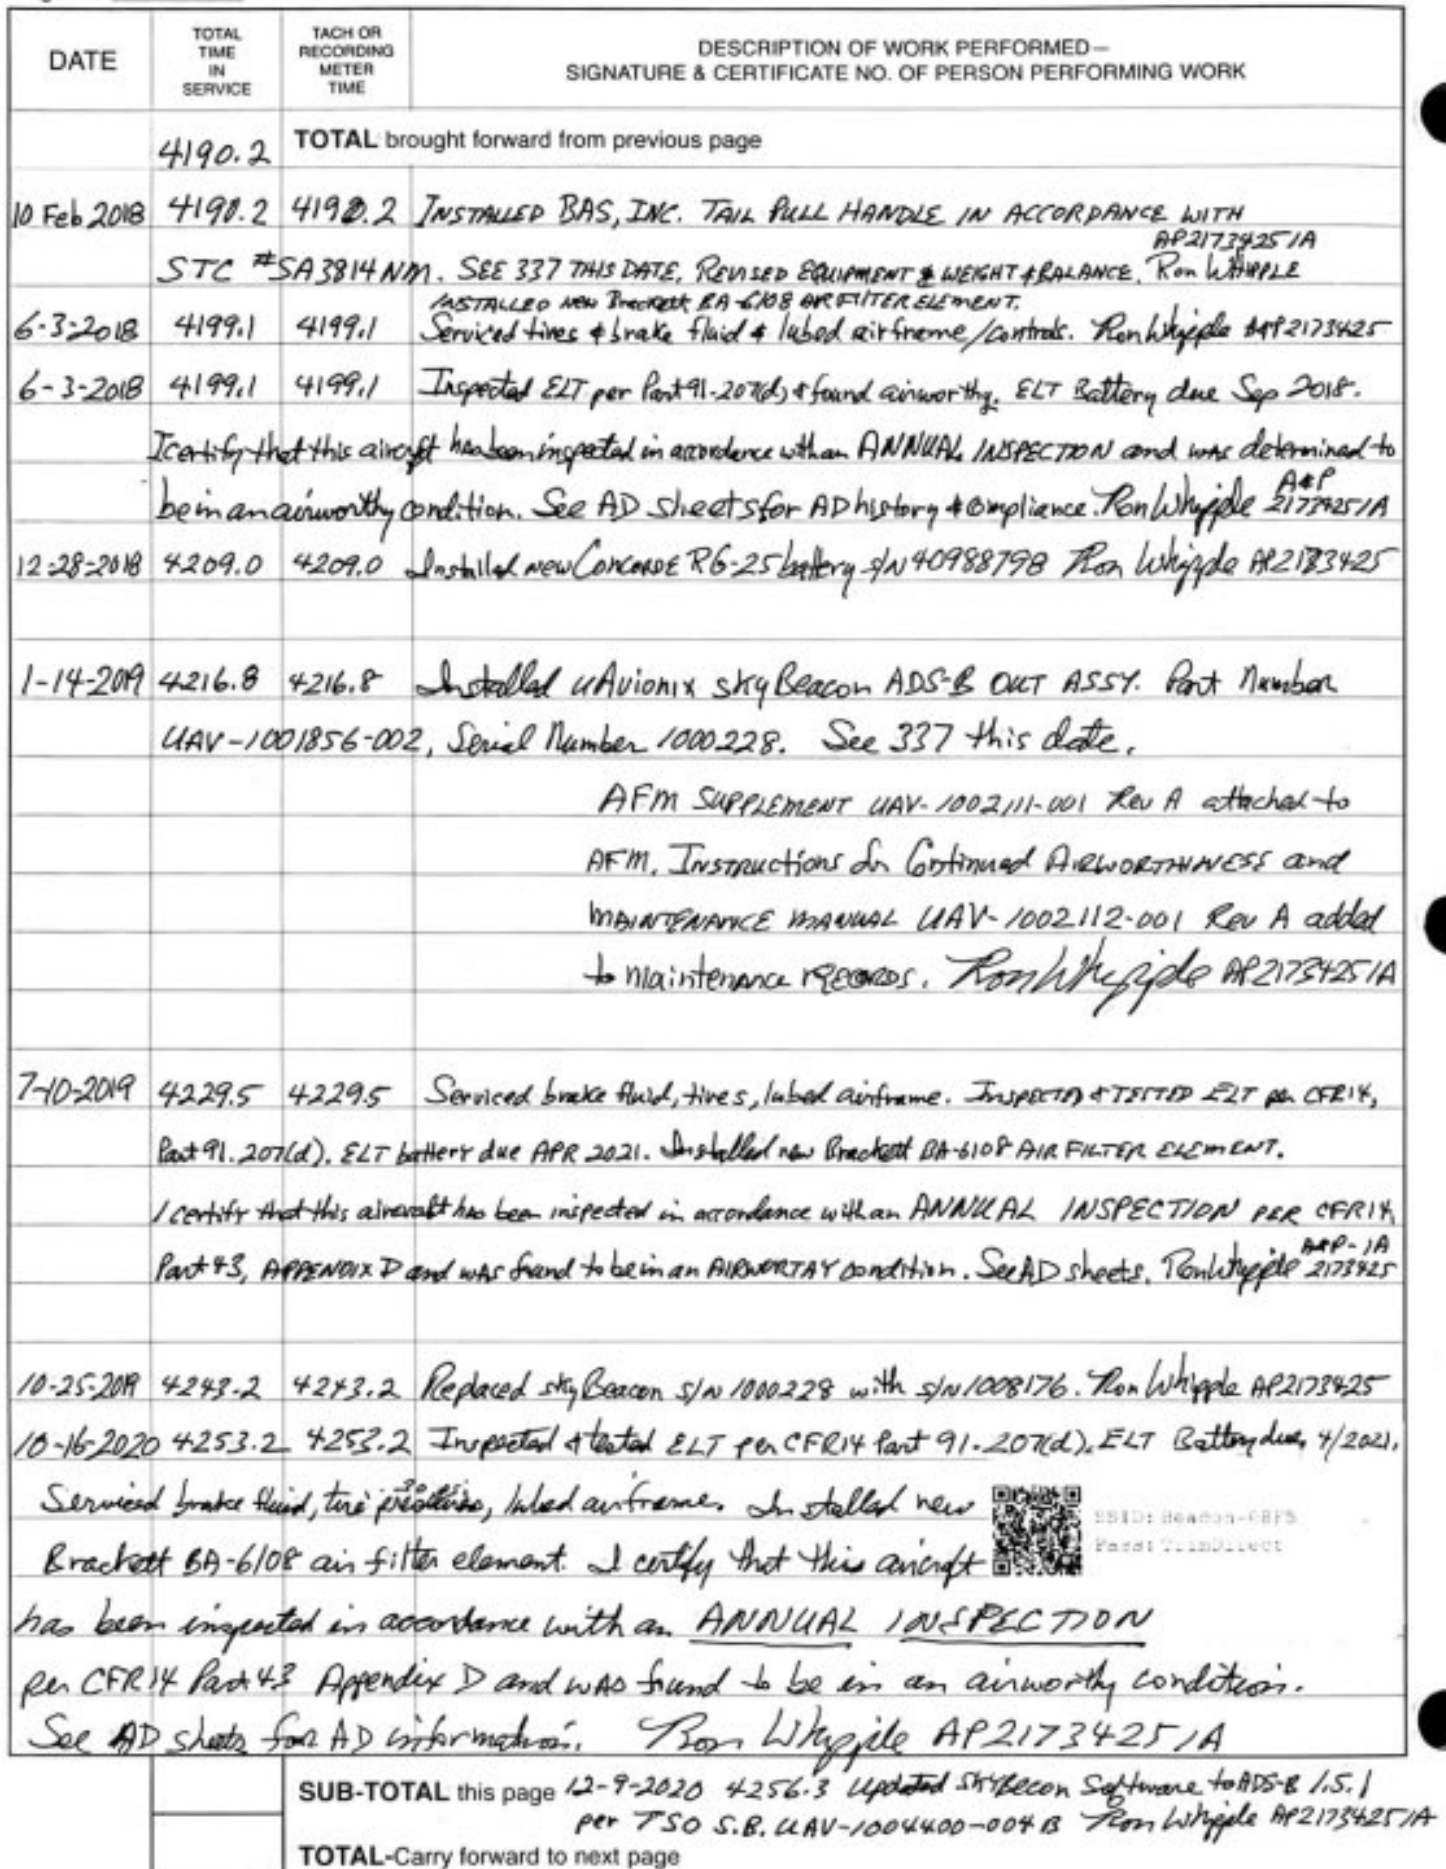 DATE
TOTAL TIME IN SERVICE
TACH OR RECORDING METER TIME
DESCRIPTION OF WORK PERFORMED—
SIGNATURE & CERTIFICATE NO. OF PERSON PERFORMING WORK
4190.2 TOTAL brought forward from previous page
10 Feb 2018 4190.2 4190.2 INSTALLED BAS, INC. TAIL PULL HANDLE IN ACCORDANCE WITH
AP2173425IA
STC #SA3814NM. SEE 337 THIS DATE. REVISED EQUIPMENT & WEIGHT & BALANCE. Ron WHIPPLE
INSTALLED NEW Brackett BA-6108 AIR FILTER ELEMENT.
6-3-2018 4199.1 4199.1 Serviced tires & brake fluid & lubed airframe/controls. Ron Whipple A&P 2173425
6-3-2018 4199.1 4199.1 Inspected ELT per Part 91-207(d) & found airworthy. ELT Battery due Sep 2018.
I certify that this aircraft has been inspected in accordance with an ANNUAL INSPECTION and was determined to
A&P
be in an airworthy condition. See AD sheets for AD history & compliance. Ron Whipple 2173425IA
12-28-2018 4209.0 4209.0 Installed new Concorde RG-25 battery s/N 40988798 Ron Whipple AP2173425
1-14-2019 4216.8 4216.8 Installed uAvionix skyBeacon ADS-B OUT ASSY. Part Number
UAV-1001856-002, Serial Number 1000228. See 337 this date.
AFM SUPPLEMENT UAV-1002111-001 Rev A attached to
AFM. INSTRUCTIONS for Continued AIRWORTHINESS and
MAINTENANCE MANUAL UAV-1002112-001 Rev A added
to maintenance RECORDS. Ron Whipple AP2173425IA
7-10-2019 4229.5 4229.5 Serviced brake fluid, tires, lubed airframe. INSPECTED & TESTED ELT per CFR14,
Part 91.207(d). ELT battery due APR 2021. Installed new Brackett BA-6108 AIR FILTER ELEMENT.
I certify that this aircraft has been inspected in accordance with an ANNUAL INSPECTION PER CFR14,
A&P-IA
Part 43, APPENDIX D and was found to be in an AIRWORTHY condition. See AD sheets. Ron Whipple 2173425
10-25-2019 4243.2 4243.2 Replaced skyBeacon s/N 1000228 with s/N 1008176. Ron Whipple AP2173425
10-16-2020 4253.2 4253.2 Inspected & tested ELT per CFR14 Part 91.207(d). ELT Battery due 4/2021.
Serviced brake fluid, tire pressures, lubed airframe. Installed new
SSID: Beacon-08F5
Pass: TrimDirect
Brackett BA-6108 air filter element. I certify that this aircraft
has been inspected in accordance with an ANNUAL INSPECTION
per CFR14 Part 43 Appendix D and was found to be in an airworthy condition.
See AD sheets for AD information. Ron Whipple AP2173425IA
SUB-TOTAL this page 12-9-2020 4256.3 Updated SkyBecon Software to ADS-B 1.5.1
per TSO S.B. UAV-1004400-004 B Ron Whipple AP2173425IA
TOTAL-Carry forward to next page